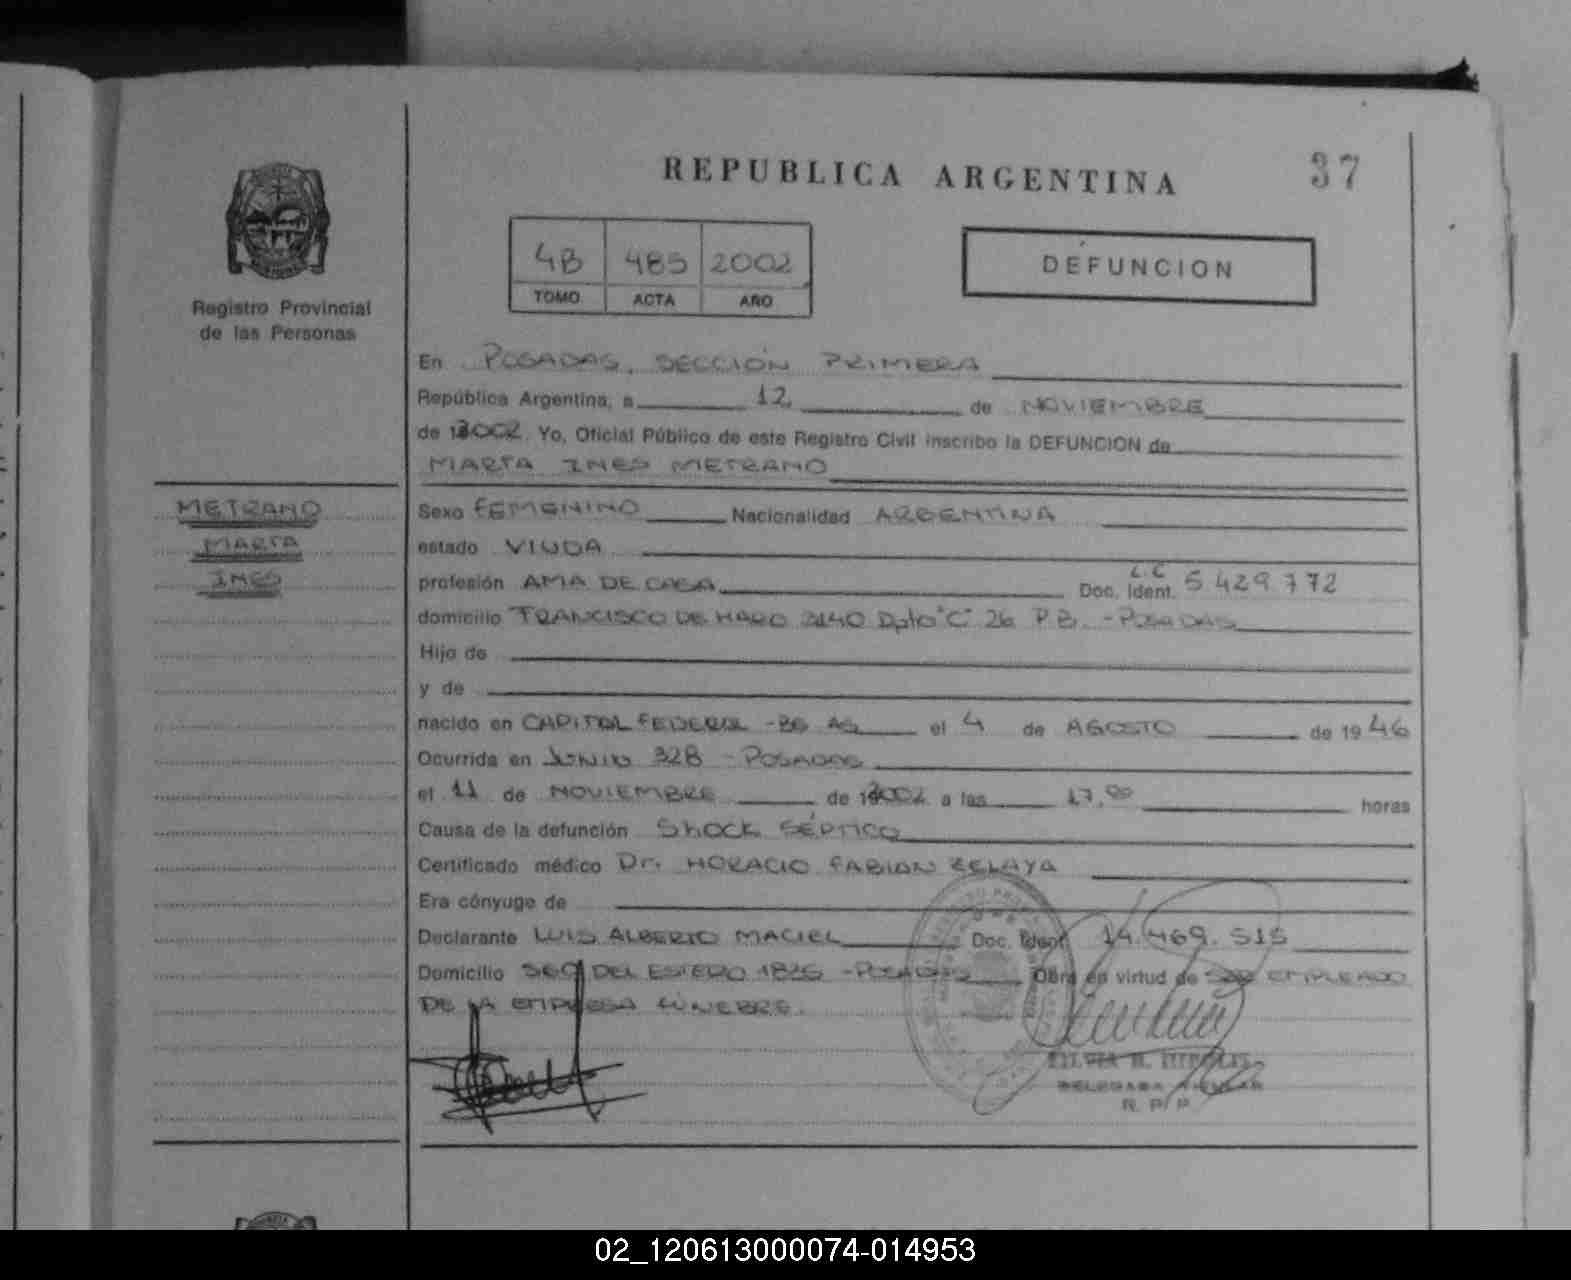 REPUBLICA ARGENTINA
37
Registro Provincial
de las Personas
4B 485 2002
TOMO ACTA AÑO
DEFUNCION
En POSADAS, SECCIÓN PRIMERA
República Argentina, a 12 de NOVIEMBRE
de 2002. Yo, Oficial Público de este Registro Civil inscribo la DEFUNCION de
MARTA INES METRANO
METRANO
MARTA
INES
Sexo FEMENINO Nacionalidad ARGENTINA
estado VIUDA
profesión AMA DE CASA Doc. Ident. L.C 5.429.772
domicilio FRANCISCO DE HARO 3140 Dpto "C" 26 P.B. - POSADAS
Hijo de
y de
nacido en CAPITAL FEDERAL - BS AS el 4 de AGOSTO de 1946
Ocurrida en JUNIO 328 - POSADAS
el 11 de NOVIEMBRE de 2002 a las 17,00 horas
Causa de la defunción SHOCK SÉPTICO
Certificado médico Dr. HORACIO FABIAN ZELAYA
Era cónyuge de
Declarante LUIS ALBERTO MACIEL Doc. Ident. 14.469.515
Domicilio SGO DEL ESTERO 1835 - POSADAS Obra en virtud de SER EMPLEADO
DE LA EMPRESA FÚNEBRE.
DELEGADA TITULAR
R. P. P.
02_120613000074-014953